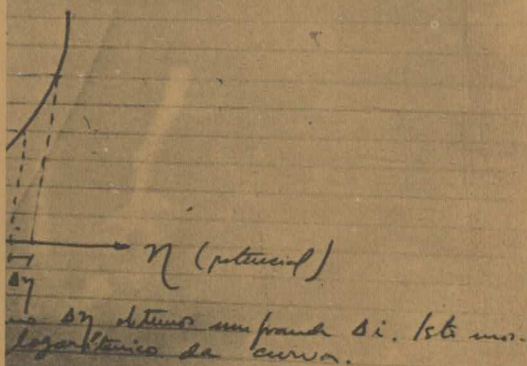 η (potencial)
Δη
Δη obtemos um grande Δi. Isto mos-
logarítmico da curva.